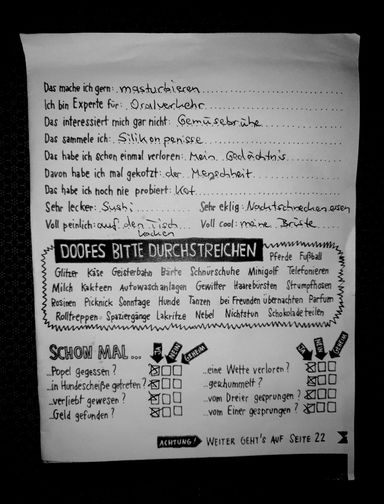 Das mache ich gern: masturbieren
Ich bin Experte für: Oralverkehr
Das interessiert mich gar nicht: Gemüsebrühe
Das sammele ich: Silikonpenisse
Das habe ich schon einmal verloren: Mein Gedächtnis
Davon habe ich mal gekotzt: der Menschheit
Das habe ich noch nie probiert: Kot
Sehr lecker: Sushi Sehr eklig: Nacktschnecken essen
Voll peinlich: auf den Tisch kacken Voll cool: meine Brüste
DOOFES BITTE DURCHSTREICHEN Pferde Fußball
Glitzer Käse Geisterbahn Bärte Schnürschuhe Minigolf Telefonieren
Milch Kakteen Autowaschanlagen Gewitter Haarebürsten Strumpfhosen
Rosinen Picknick Sonntage Hunde Tanzen bei Freunden übernachten Parfum
Rolltreppen Spaziergänge Lakritze Nebel Nichtstun Schokolade teilen
SCHON MAL... JA NEIN GEHEIM JA NEIN GEHEIM
...Popel gegessen? ...eine Wette verloren?
...in Hundescheiße getreten? ...geschummelt?
...verliebt gewesen? ...vom Dreier gesprungen?
...Geld gefunden? ...vom Einer gesprungen?
ACHTUNG! WEITER GEHT'S AUF SEITE 22